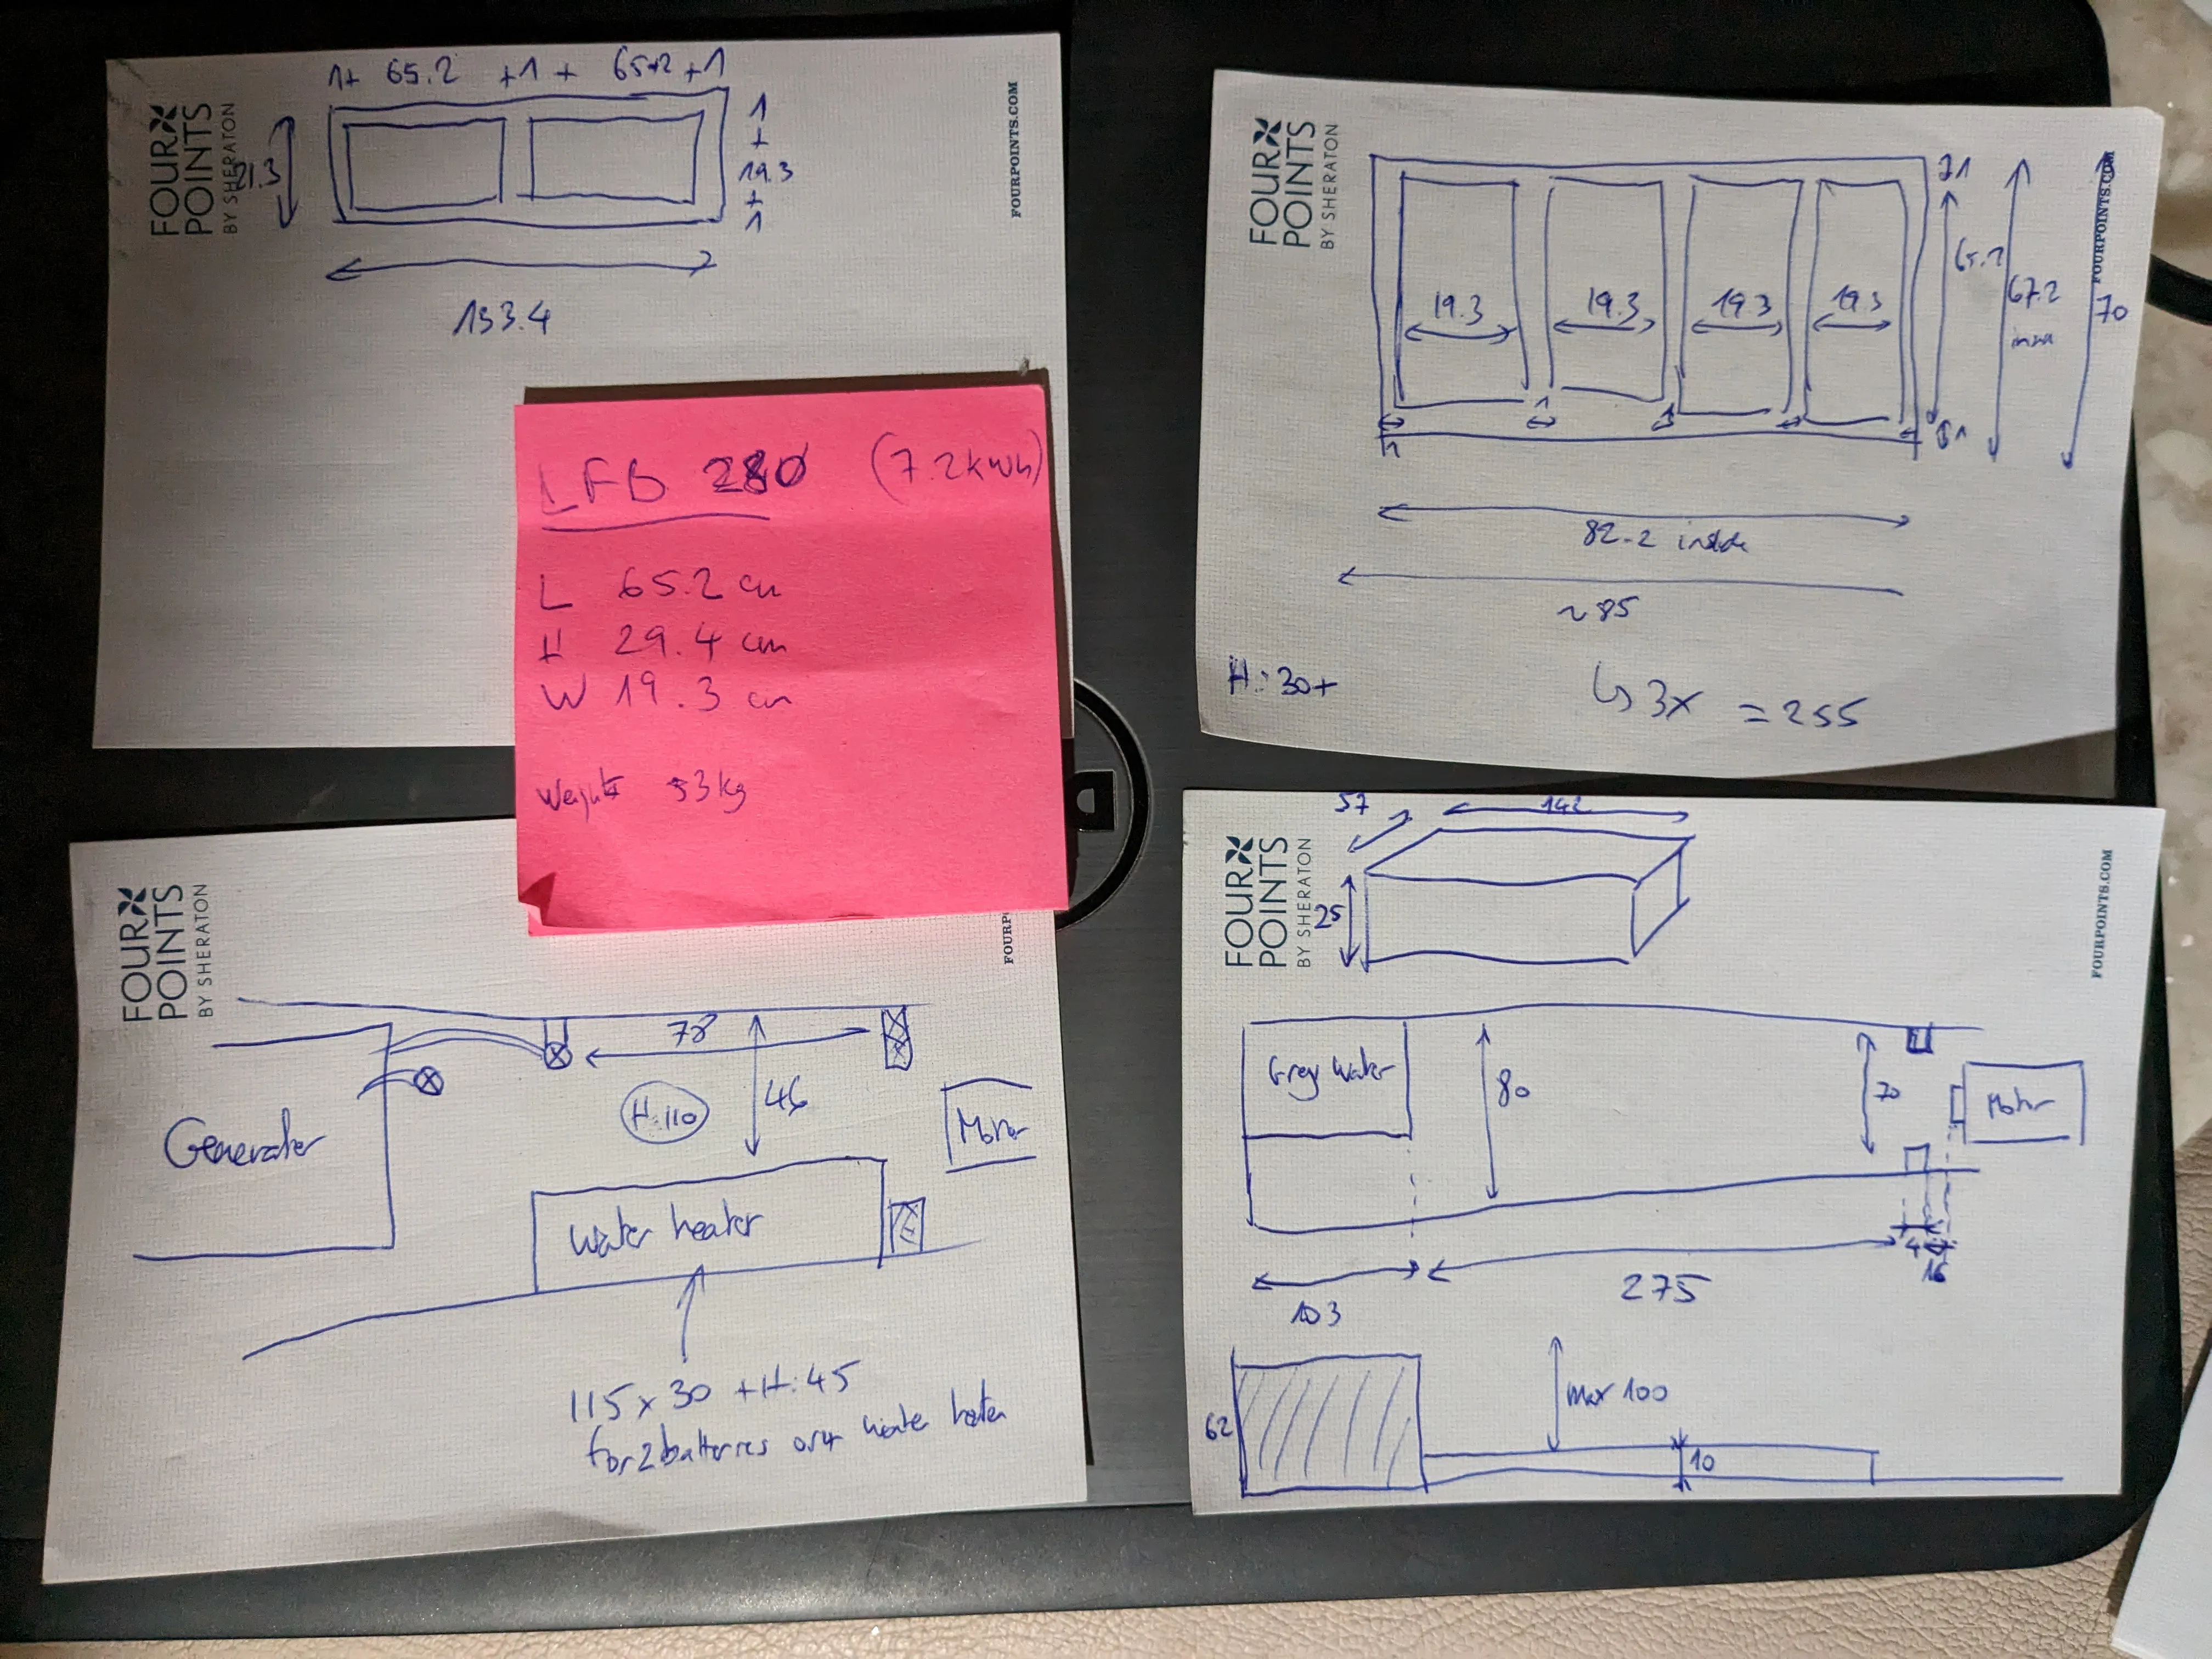 1+ 65.2 +1 + 65.2 +1
1
+
19.3
+
1
153.4
FOUR POINTS
BY SHERATON
FOURPOINTS.COM
LFB 280 (7.2kWh)
L 65.2 cm
H 29.4 cm
W 19.3 cm
Weight 53kg
FOUR POINTS
BY SHERATON
FOURPOINTS.COM
1
19.3 19.3 19.3 19.3
65.2
67.2
70
1
1
82.2 inside
~85
H: 30+
↳ 3x = 255
FOUR POINTS
BY SHERATON
FOURP
78
46
H: 110
Generator
Motor
Water heater
115 x 30 + H: 45
for 2 batteries over water heater
FOUR POINTS
BY SHERATON
FOURPOINTS.COM
57
142
25
Grey Water
80
70
Motor
4
16
103
275
62
max 100
10